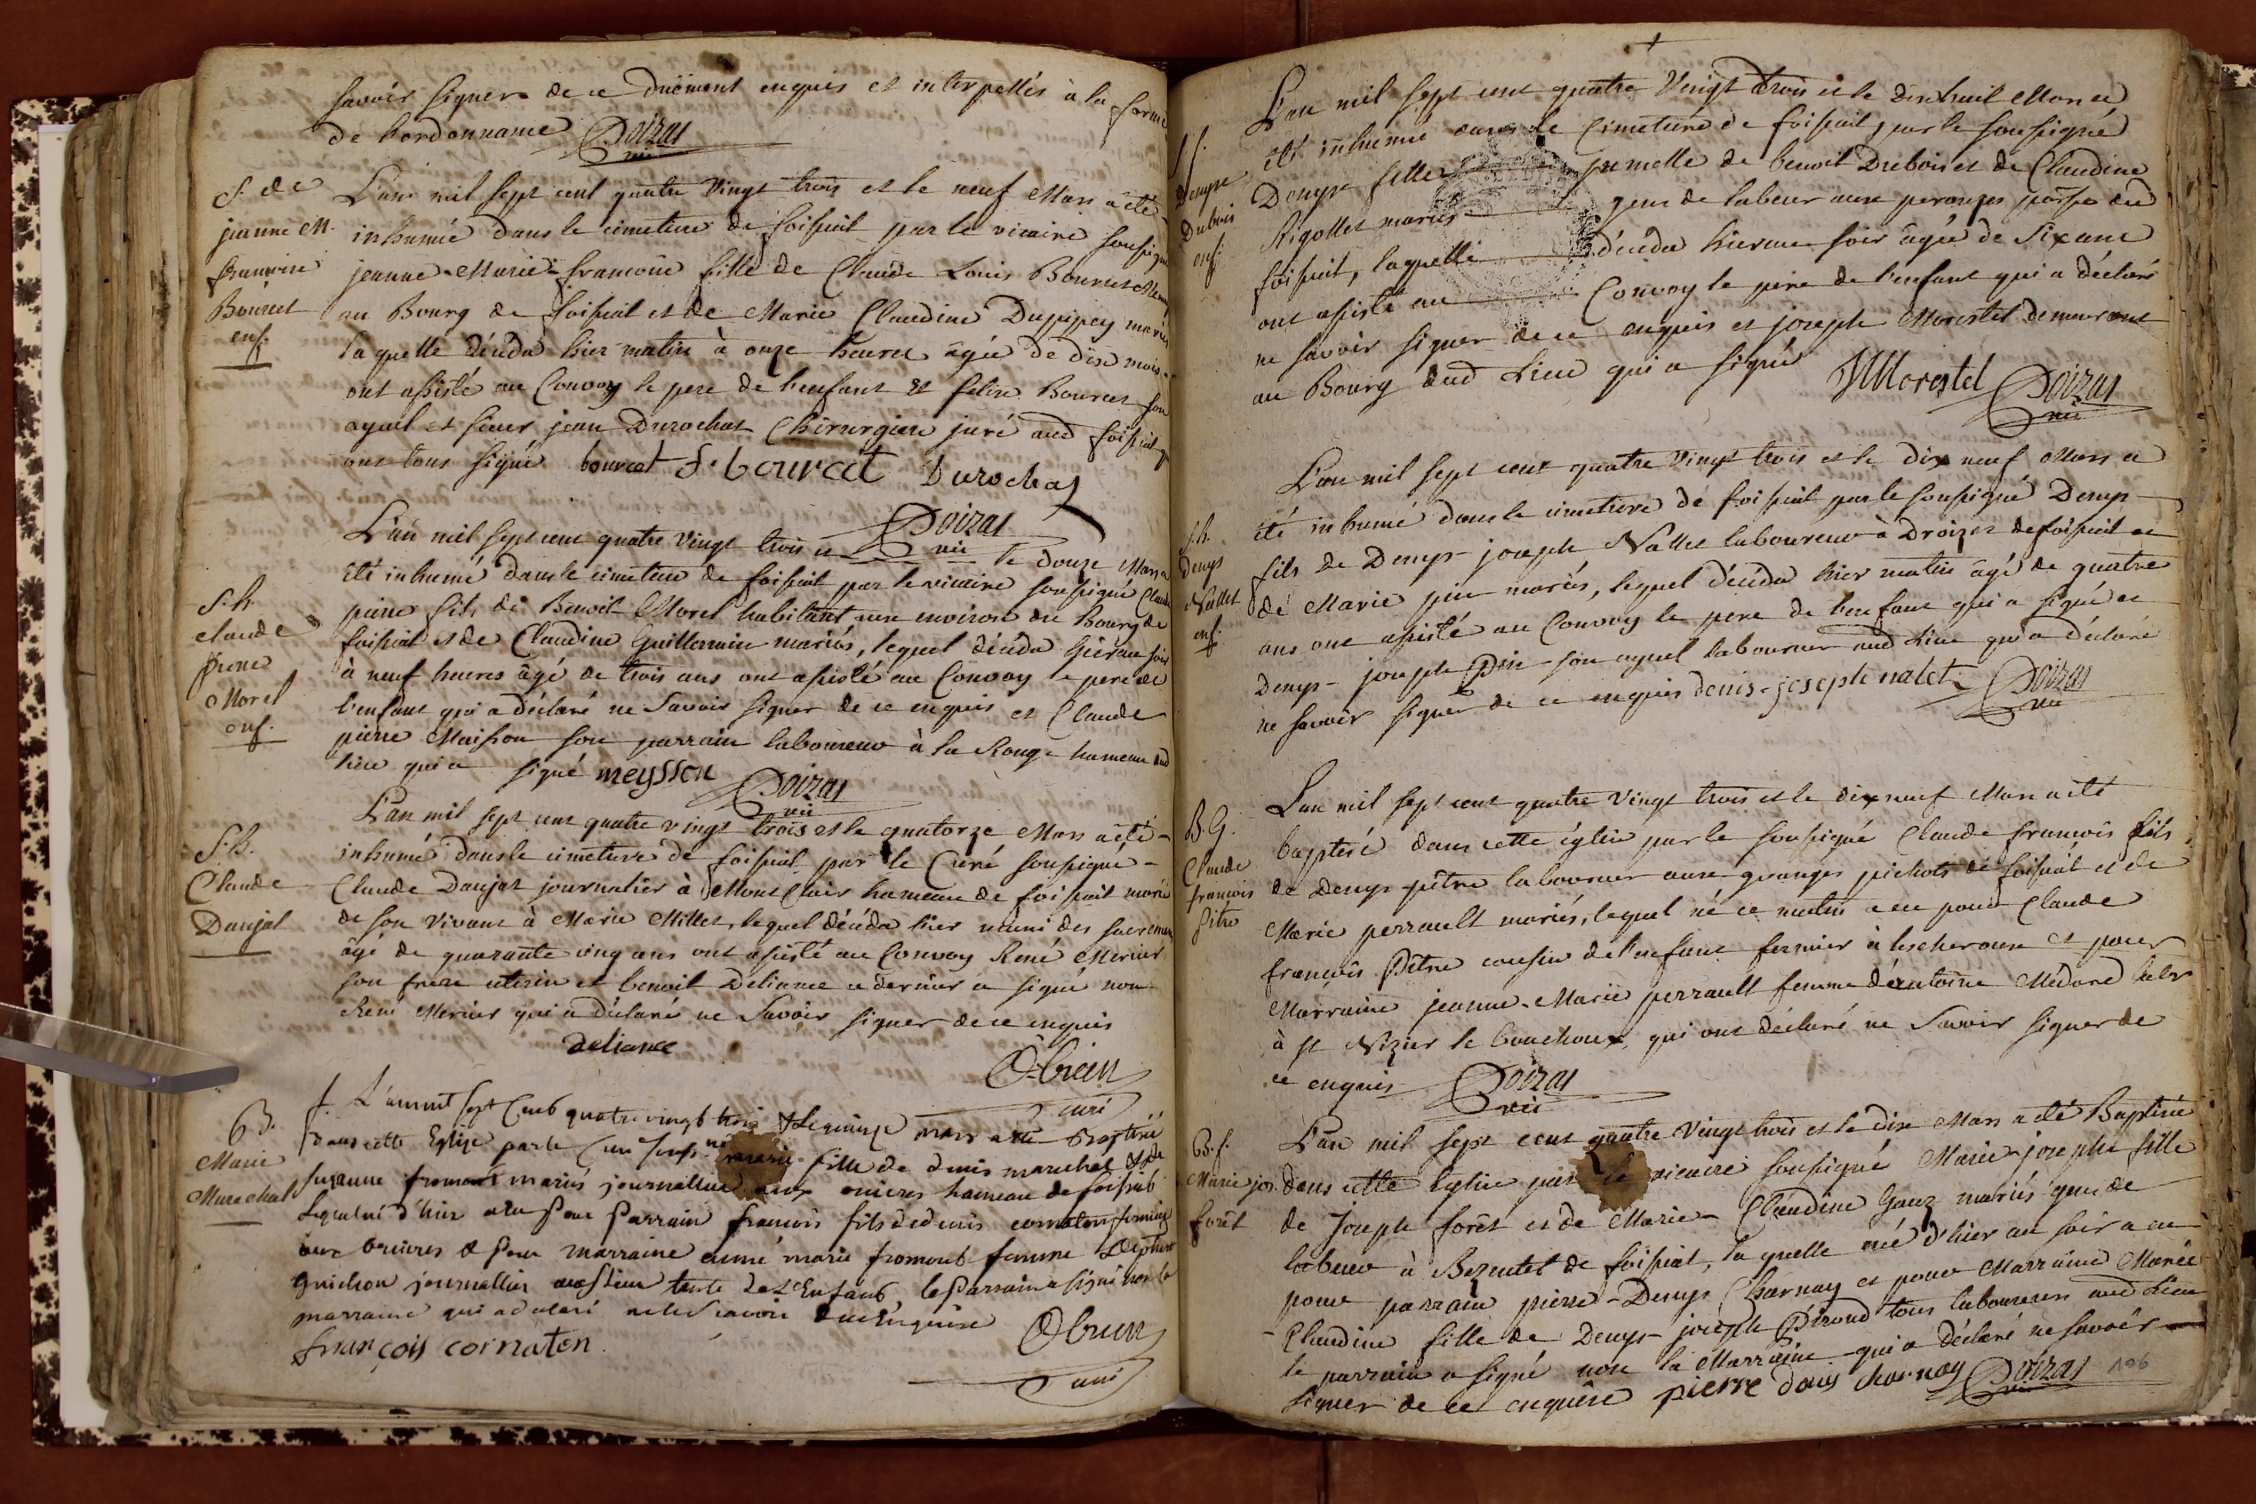 savoir signer de ce duëment enquis et interpellés à la forme
de l'ordonnance Doizat
vic
S. de
jeanne M.
francoise
Bourcet
enf.
L'an mil sept cent quatre vingt trois et le neuf Mars a été
inhumée dans le cimetiere de foissiat par le vicaire soussigné
jeanne-Marie-francoise fille de Claude Louis Bourcet
au Bourg de foissiat et de Marie Claudine Dupipey mariés
laquelle décéda hier matin à onze heures âgée de dix mois.
ont assisté au Convoy le pere de l'enfant et felix Bourcet son
ayeul et sieur jean Durochat Chirurgien juré aud foissiat qui
ont tous signé bourcet f. bourcet Durochat
Doizat
vic
S. h.
claude
pierre
Morel
enf.
L'an mil sept cent quatre vingt trois et le douze Mars a
été inhumé dans le cimetiere de foissiat par le vicaire soussigné Claude
pierre fils de Benoit Morel habitant aux environs du Bourg de
foissiat et de Claudine Guillermin mariés, lequel décéda hier au soir
à neuf heures âgé de trois ans ont assisté au Convoy le pere de
l'enfant qui a déclaré ne savoir signer de ce enquis et Claude
pierre Maisson son parrain laboureur à la Rouge hameau dud
lieu qui a signé meysson Doizat
vic
S. h.
Claude
Danjat
L'an mil sept cent quatre vingt trois et le quatorze Mars a été
inhumé dans le cimetiere de foissiat par le Curé soussigné
Claude Danjat journalier à Mont Clair hameau de foissiat marié
de son vivant à Marie Millet, lequel décéda hier muni des sacremens
âgé de quarante cinq ans ont assisté au Convoy René Mercier
son frere uterin et benoit Deliance ce dernier a signé non
René Mercier qui a déclaré ne savoir signer de ce enquis
deliance
Obrien
curé
B.
Marie
Marechal
f. L'an mil sept cens quatre vingt trois & le quinze mars a été Baptisée
dans cette Eglise par le Curé souss.né marie fille de denis marechal & de
suzanne fromont mariés journallier aux hameau de foissiat
Laquelle né d'hier a eu Pour Parrain francois fils de denis cornaton fermier
aux bruieres & Pour marraine aimé marie fromont femme
Guichon journallier tante de l'Enfant, le Parrain a signé non la
marraine qui a declaré ne le scavoir Enquise
françois cornaton
Obrien
curé
S. f.
Denyse
Dubois
enf.
L'an mil sept cent quatre Vingt trois et le dix huit Mars a
été inhumée dans le Cimetiere de foissiat, par le soussigné
Denyse fille jumelle de benoit Dubois et de Claudine
Rigollet mariés gens de labeur aux peranges pöisse dud
foissiat, laquelle décéda hier au soir âgée de six ans
ont assisté au Convoy le pere de l'enfant qui a déclaré
ne savoir signer de ce enquis et joseph Morestel demeurant
au Bourg dud Lieu qui a signé JMorestel Doizat
vic
S. h.
denys
Nallet
enf.
L'an mil sept cent quatre vingt trois et le dix neuf Mars a
été inhumé dans le cimetiere de foissiat par le soussigné Denys
fils de Denys-joseph Nallet laboureur à Droizes de foissiat et
de Marie pin mariés, lequel décéda hier matin âgé de quatre
ans ont assisté au Convoy le pere de l'enfant qui a signé et
Denys-joseph Pin son ayeul laboureur aud Lieu qui a déclaré
ne savoir signer de ce enquis denis-joseph nalet Doizat
vic
B. G.
Claude
francois
pitre
L'an mil sept cent quatre Vingt trois et le dix neuf Mars a été
baptisé dans cette église par le soussigné Claude francois fils
de Denys pitre laboureur aux granges pichots de foissiat et de
Marie perrault mariés, lequel né ce matin a eu pour Claude
francois Pitre cousin de l'enfant fermier à lescheroux et pour
Marraine jeanne-Marie perrault femme d'antoine Médard labr
à St Nizier le bouchoux, qui ont déclaré ne savoir signer de
ce enquis Doizat
vic
B. f.
Marie jos.
forêt
L'an mil sept cent quatre Vingt trois et le dix Mars a été Baptisée
dans cette Eglise par le vicaire soussigné Marie-josephe fille
de Joseph forêt et de Marie-Claudine Gauz mariés gens de
labeur à Bezentet de foissiat, laquelle née d'hier au soir a eu
pour parrain pierre-Denys Charnay et pour Marraine Marie
Claudine fille de Denys-joseph Péroud tous laboureurs aud Lieu
le parrain a signé non la Marraine qui a déclaré ne savoir
signer de ce enquise pierre denis charnay Doizat
vic
106